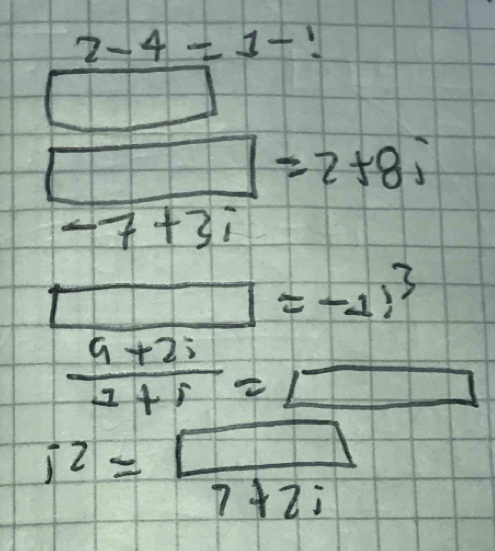 2-4=1-i
=2+8i
-7+3i
=-1i³
9+2i
1+i =
i2=
7+2i